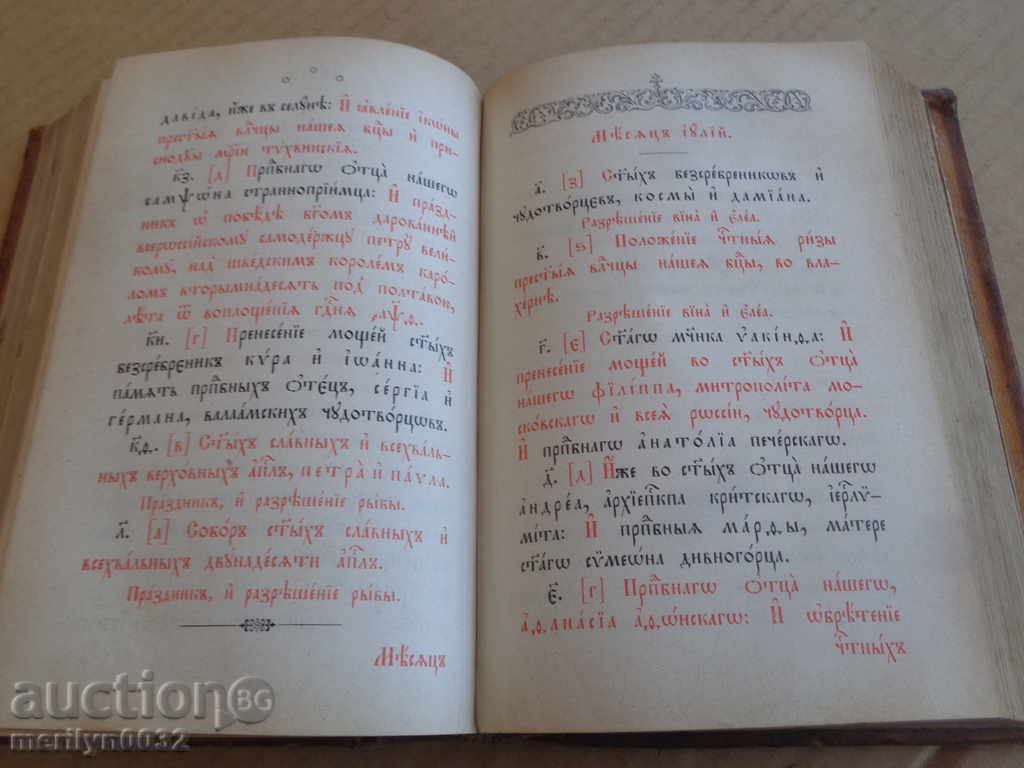 даві́да, и҆́же въ селꙋ́нѣ: И҆ ꙗ҆вле́нїе і҆кѡ́ны
прест҃ы́ѧ влⷣчцы на́шеѧ бцⷣы и҆ при-
снодв҃ы мр҃і́и тѵ́хвинскїѧ.
к҃з. [д] Прпⷣбнагѡ ѻ҆тца̀ на́шегѡ
самѱѡ́на страннопрїи́мца: И҆ пра́зд-
никъ ѡ҆ побѣ́дѣ бг҃омъ дарова́ннѣй
всерѡссі́йскому самоде́ржцу петрꙋ̀ вели́-
кому, над̾ шве́дскимъ короле́мъ каро́-
ломъ вторымна́десѧть под̾ полта́вою,
лѣ́та ѿ воплоще́нїѧ гдⷭ҇нѧ ҂аѱ҃ѳ.
к҃и. [г] Пренесе́нїе моще́й ст҃ы́хъ
безсре́бреникъ кѵ́ра и҆ і҆ѡа́нна: И҆
па́мѧть прпⷣбныхъ ѻ҆тє́цъ, се́ргїа и҆
ге́рмана, валаа́мскихъ чꙋдотво́рцѡвъ.
к҃ѳ. [в] Ст҃ы́хъ сла́вныхъ и҆ всехва́ль-
ныхъ верхо́вныхъ а҆пⷭ҇лъ, петра̀ и҆ па́ѵла.
Пра́здникъ, и҆ разрѣше́нїе ры́бы.
л҃. [а] Собо́ръ ст҃ы́хъ сла́вныхъ и҆
всехва́льныхъ двꙋна́десѧти а҆пⷭ҇лъ.
Пра́здникъ, и҆ разрѣше́нїе ры́бы.
Мѣ́сѧцъ
Мѣ́сѧцъ і҆ꙋ́лїй.
а҃. [з] Ст҃ы́хъ безсре́бреникѡвъ и҆
чꙋдотво́рцєвъ, космы̀ и҆ дамїа́на.
Разрѣше́нїе вїна̀ и҆ є҆ле́а.
в҃. [ѕ] Положе́нїе чⷭ҇тны́ѧ ри́зы
прест҃ы́ѧ влⷣчцы на́шеѧ бцⷣы, во вла-
хе́рнѣ.
Разрѣше́нїе вїна̀ и҆ є҆ле́а.
г҃. [є] Ст҃а́гѡ мч҃нка ѵ҆акі́нѳа: И҆
пренесе́нїе моще́й во ст҃ы́хъ ѻ҆тца̀
на́шегѡ фїлі́ппа, митрополі́та мо-
ско́вскагѡ и҆ всеѧ̀ рѡссі́и, чꙋдотво́рца.
И҆ прпⷣбнагѡ а҆нато́лїа пече́рскагѡ.
д҃. [д] И҆́же во ст҃ы́хъ ѻ҆тца̀ на́шегѡ
а҆ндре́а, а҆рхїепⷭ҇кпа кри́тскагѡ, і҆ерⷭ҇лꙋ-
ми́та: И҆ прпⷣбныѧ ма́рѳы, ма́тере
ст҃а́гѡ сѷмеѡ́на дивного́рца.
є҃. [г] Прпⷣбнагѡ ѻ҆тца̀ на́шегѡ,
а҆ѳана́сїа а҆ѳѡ́нскагѡ: И҆ ѡ҆брѣ́тенїе
чⷭ҇тны́хъ
auctionBG
merilyn0032